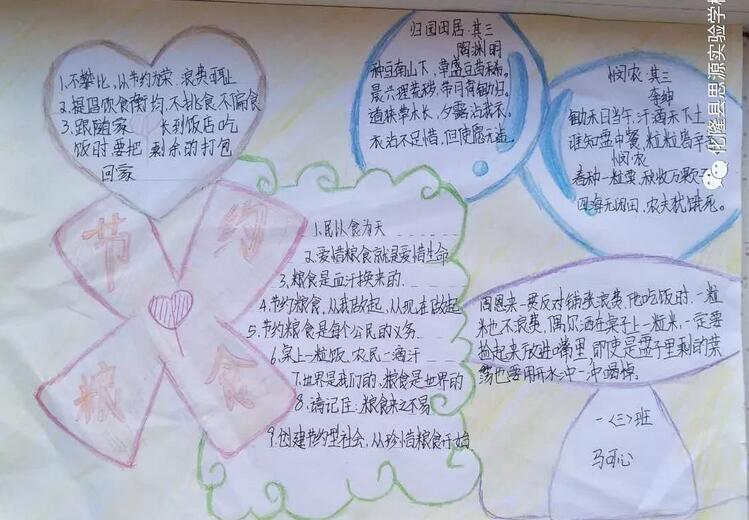 1.不攀比,以节约为荣、浪费可耻
2.提倡饮食衡均、不挑食、不偏食
3.跟随家 长到饭店吃
饭时要把 剩余的打包
回家
归园田居·其三
陶渊明
种豆南山下,草盛豆苗稀。
晨兴理荒秽,带月荷锄归。
道狭草木长,夕露沾我衣。
衣沾不足惜,但使愿无违。
悯农·其三
李绅
锄禾日当午,汗滴禾下土
谁知盘中餐,粒粒皆辛苦
悯农
春种一粒粟,秋收万颗子
四海无闲田,农夫犹饿死。
节约
粮食
1.民以食为天
2.爱惜粮食就是爱惜生命
3.粮食是血汗换来的.
4.节约粮食,从我做起,从现在做起
5.节约粮食是每个公民的义务
6.桌上一粒饭,农民一滴汗
7.世界是我们的,粮食是世界的
8.请记住、粮食来之不易
9.创建节约型社会,从珍惜粮食开始
周恩来一贯反对铺张浪费,他吃饭时,一粒
米也不浪费,偶尔洒在桌子上一粒米,一定要
捡起来放进嘴里,即使是盘子里剩的菜
汤也要用开水冲一冲喝掉。
一〈三〉班
马可心
化隆县思源实验学校